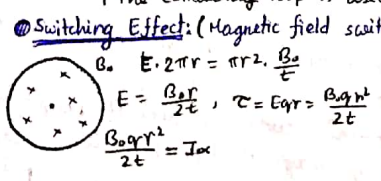 Switching Effect: (Magnetic field swit
B₀ E·2πr = πr²· B₀/t
E = B₀r/2t , τ = Eqr = B₀qr²/2t
B₀qr²/2t = Iα